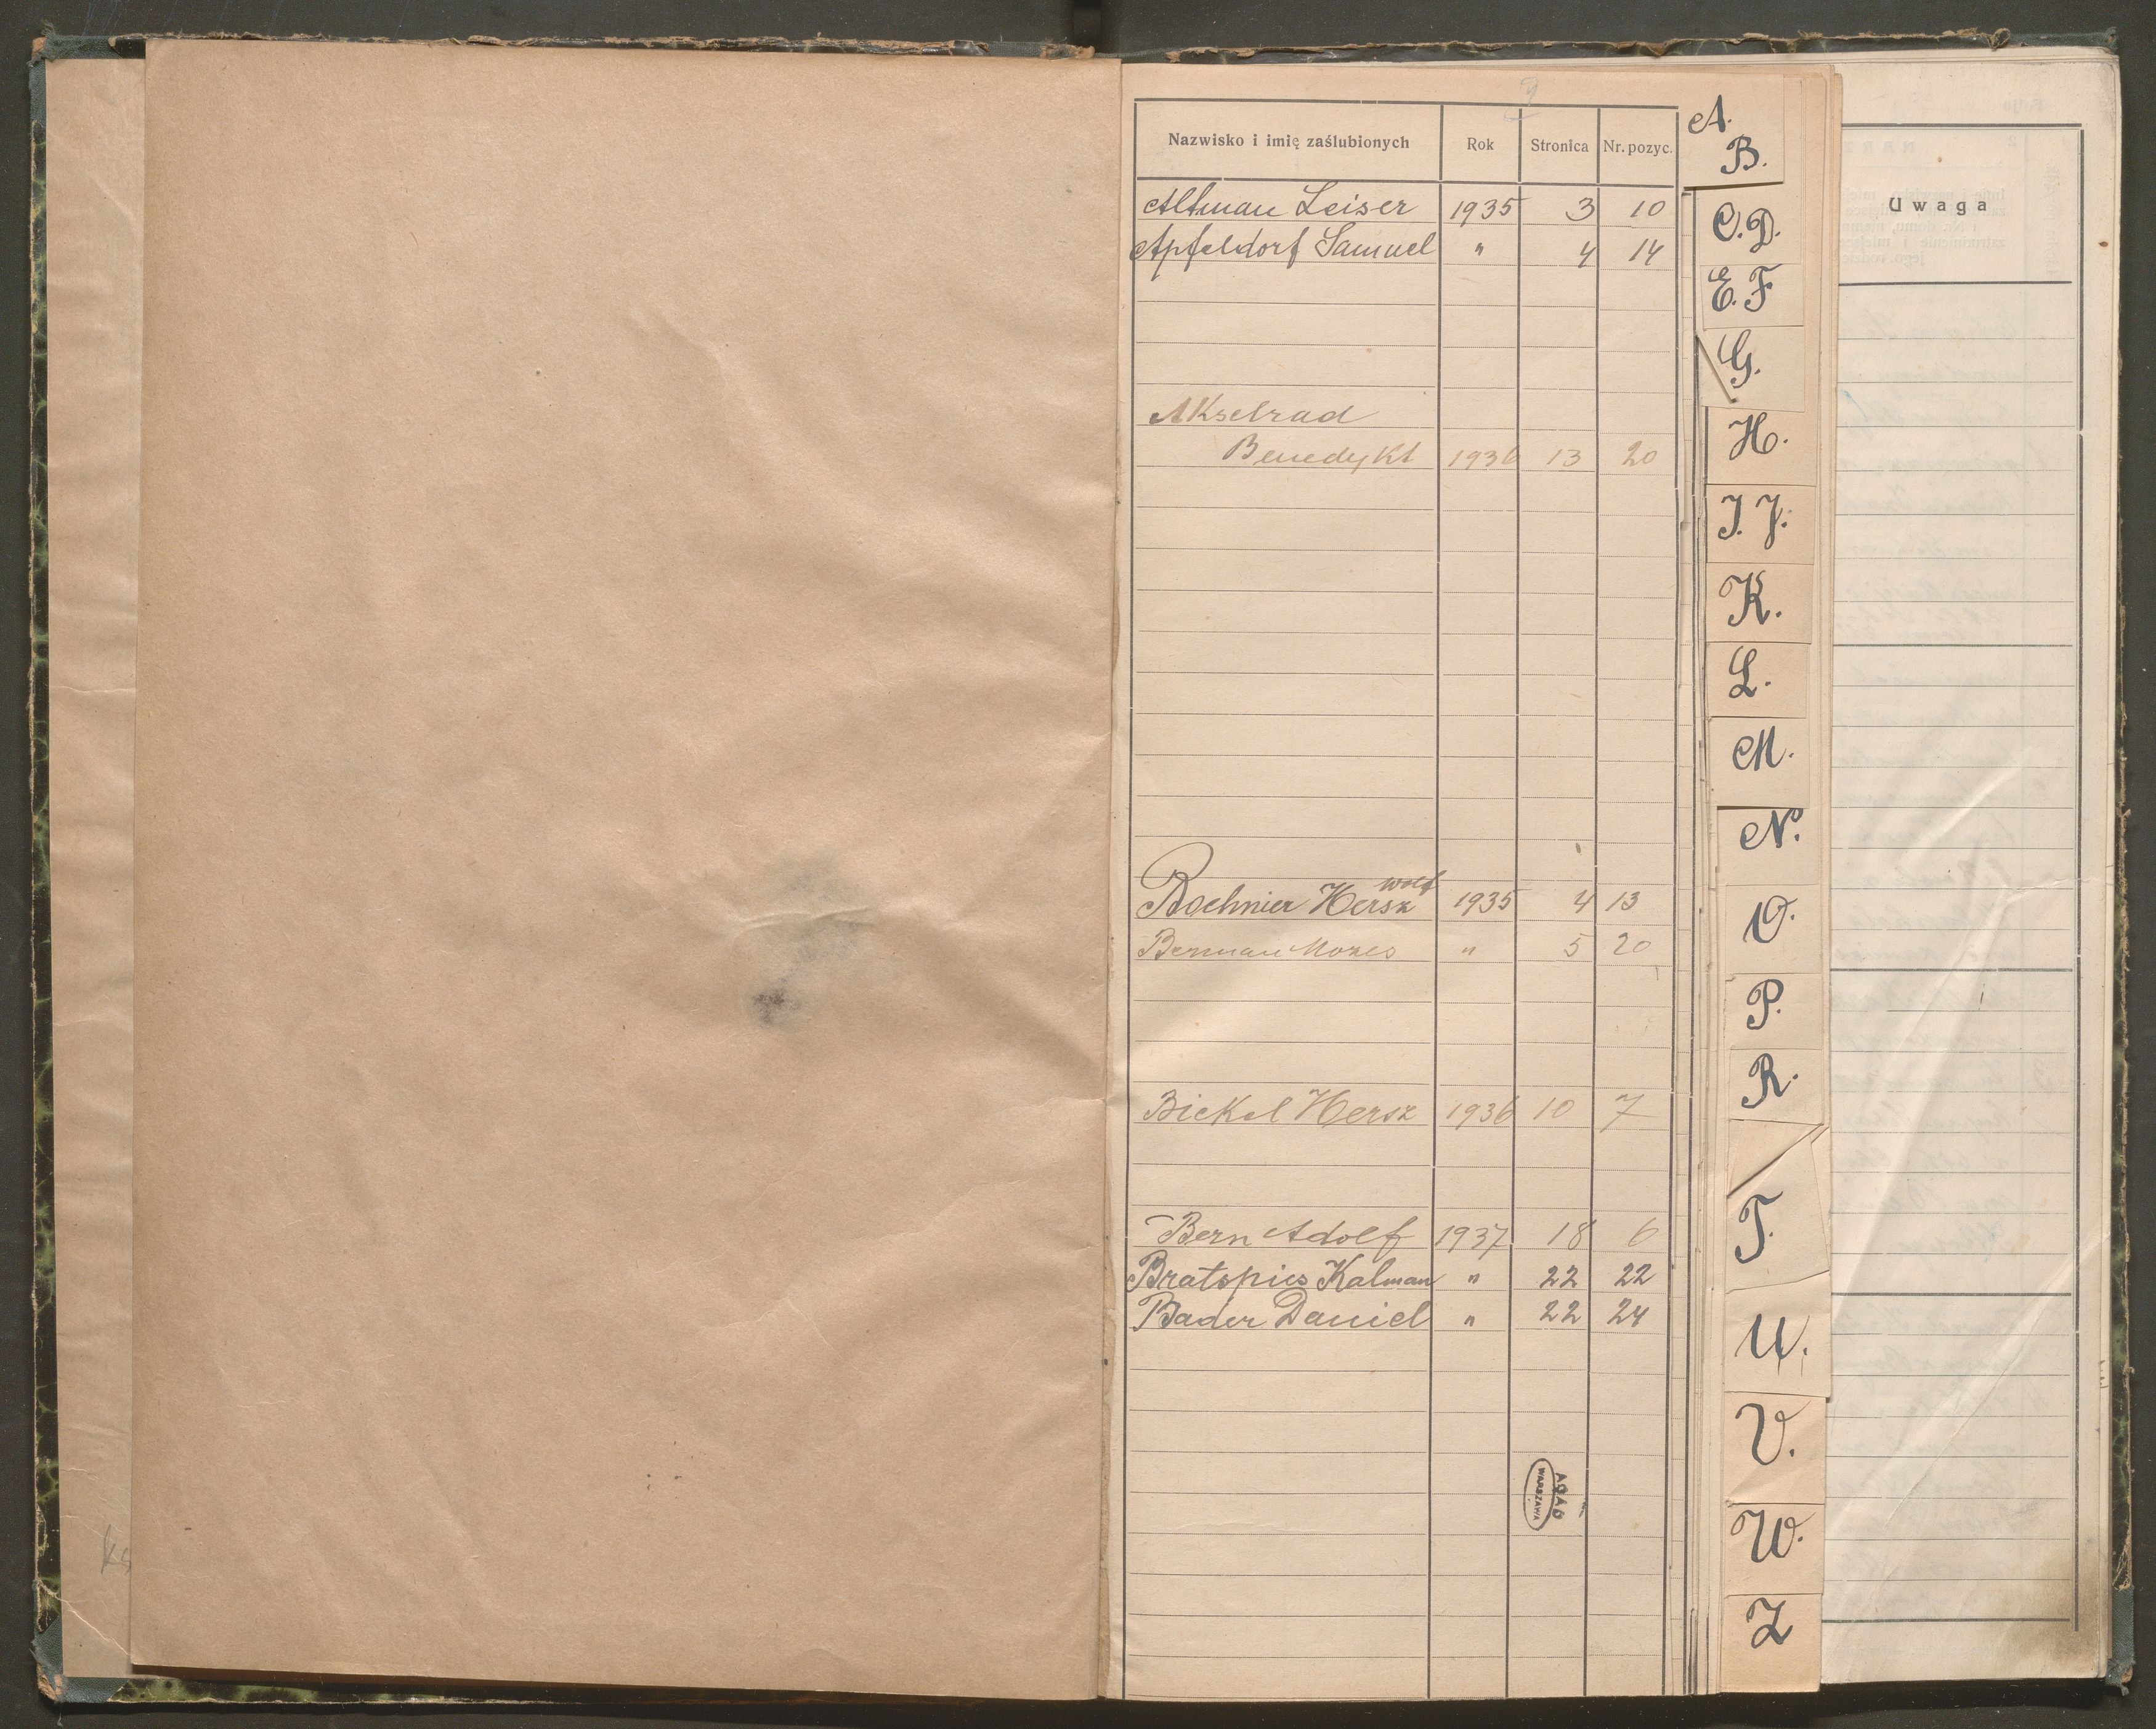 2
Nazwisko i imię zaślubionych Rok Stronica Nr. pozyc.
Altman Leiser 1935 3 10
Apfeldorf Samuel " 4 14
Akselrad
Benedykt 1936 13 20
Wolf
Bochnier Hersz 1935 4 13
Berman Mozes " 5 20
Bickel Hersz 1936 10 7
Bern Adolf 1937 18 6
Bratspies Kalman " 22 22
Bader Daniel " 22 24
AGAD
WARSZAWA
A.
B.
C. D.
E. F
G.
H.
I. J.
K.
L.
M.
N.
O.
P.
R.
T.
U.
V.
W.
Z
Uwaga